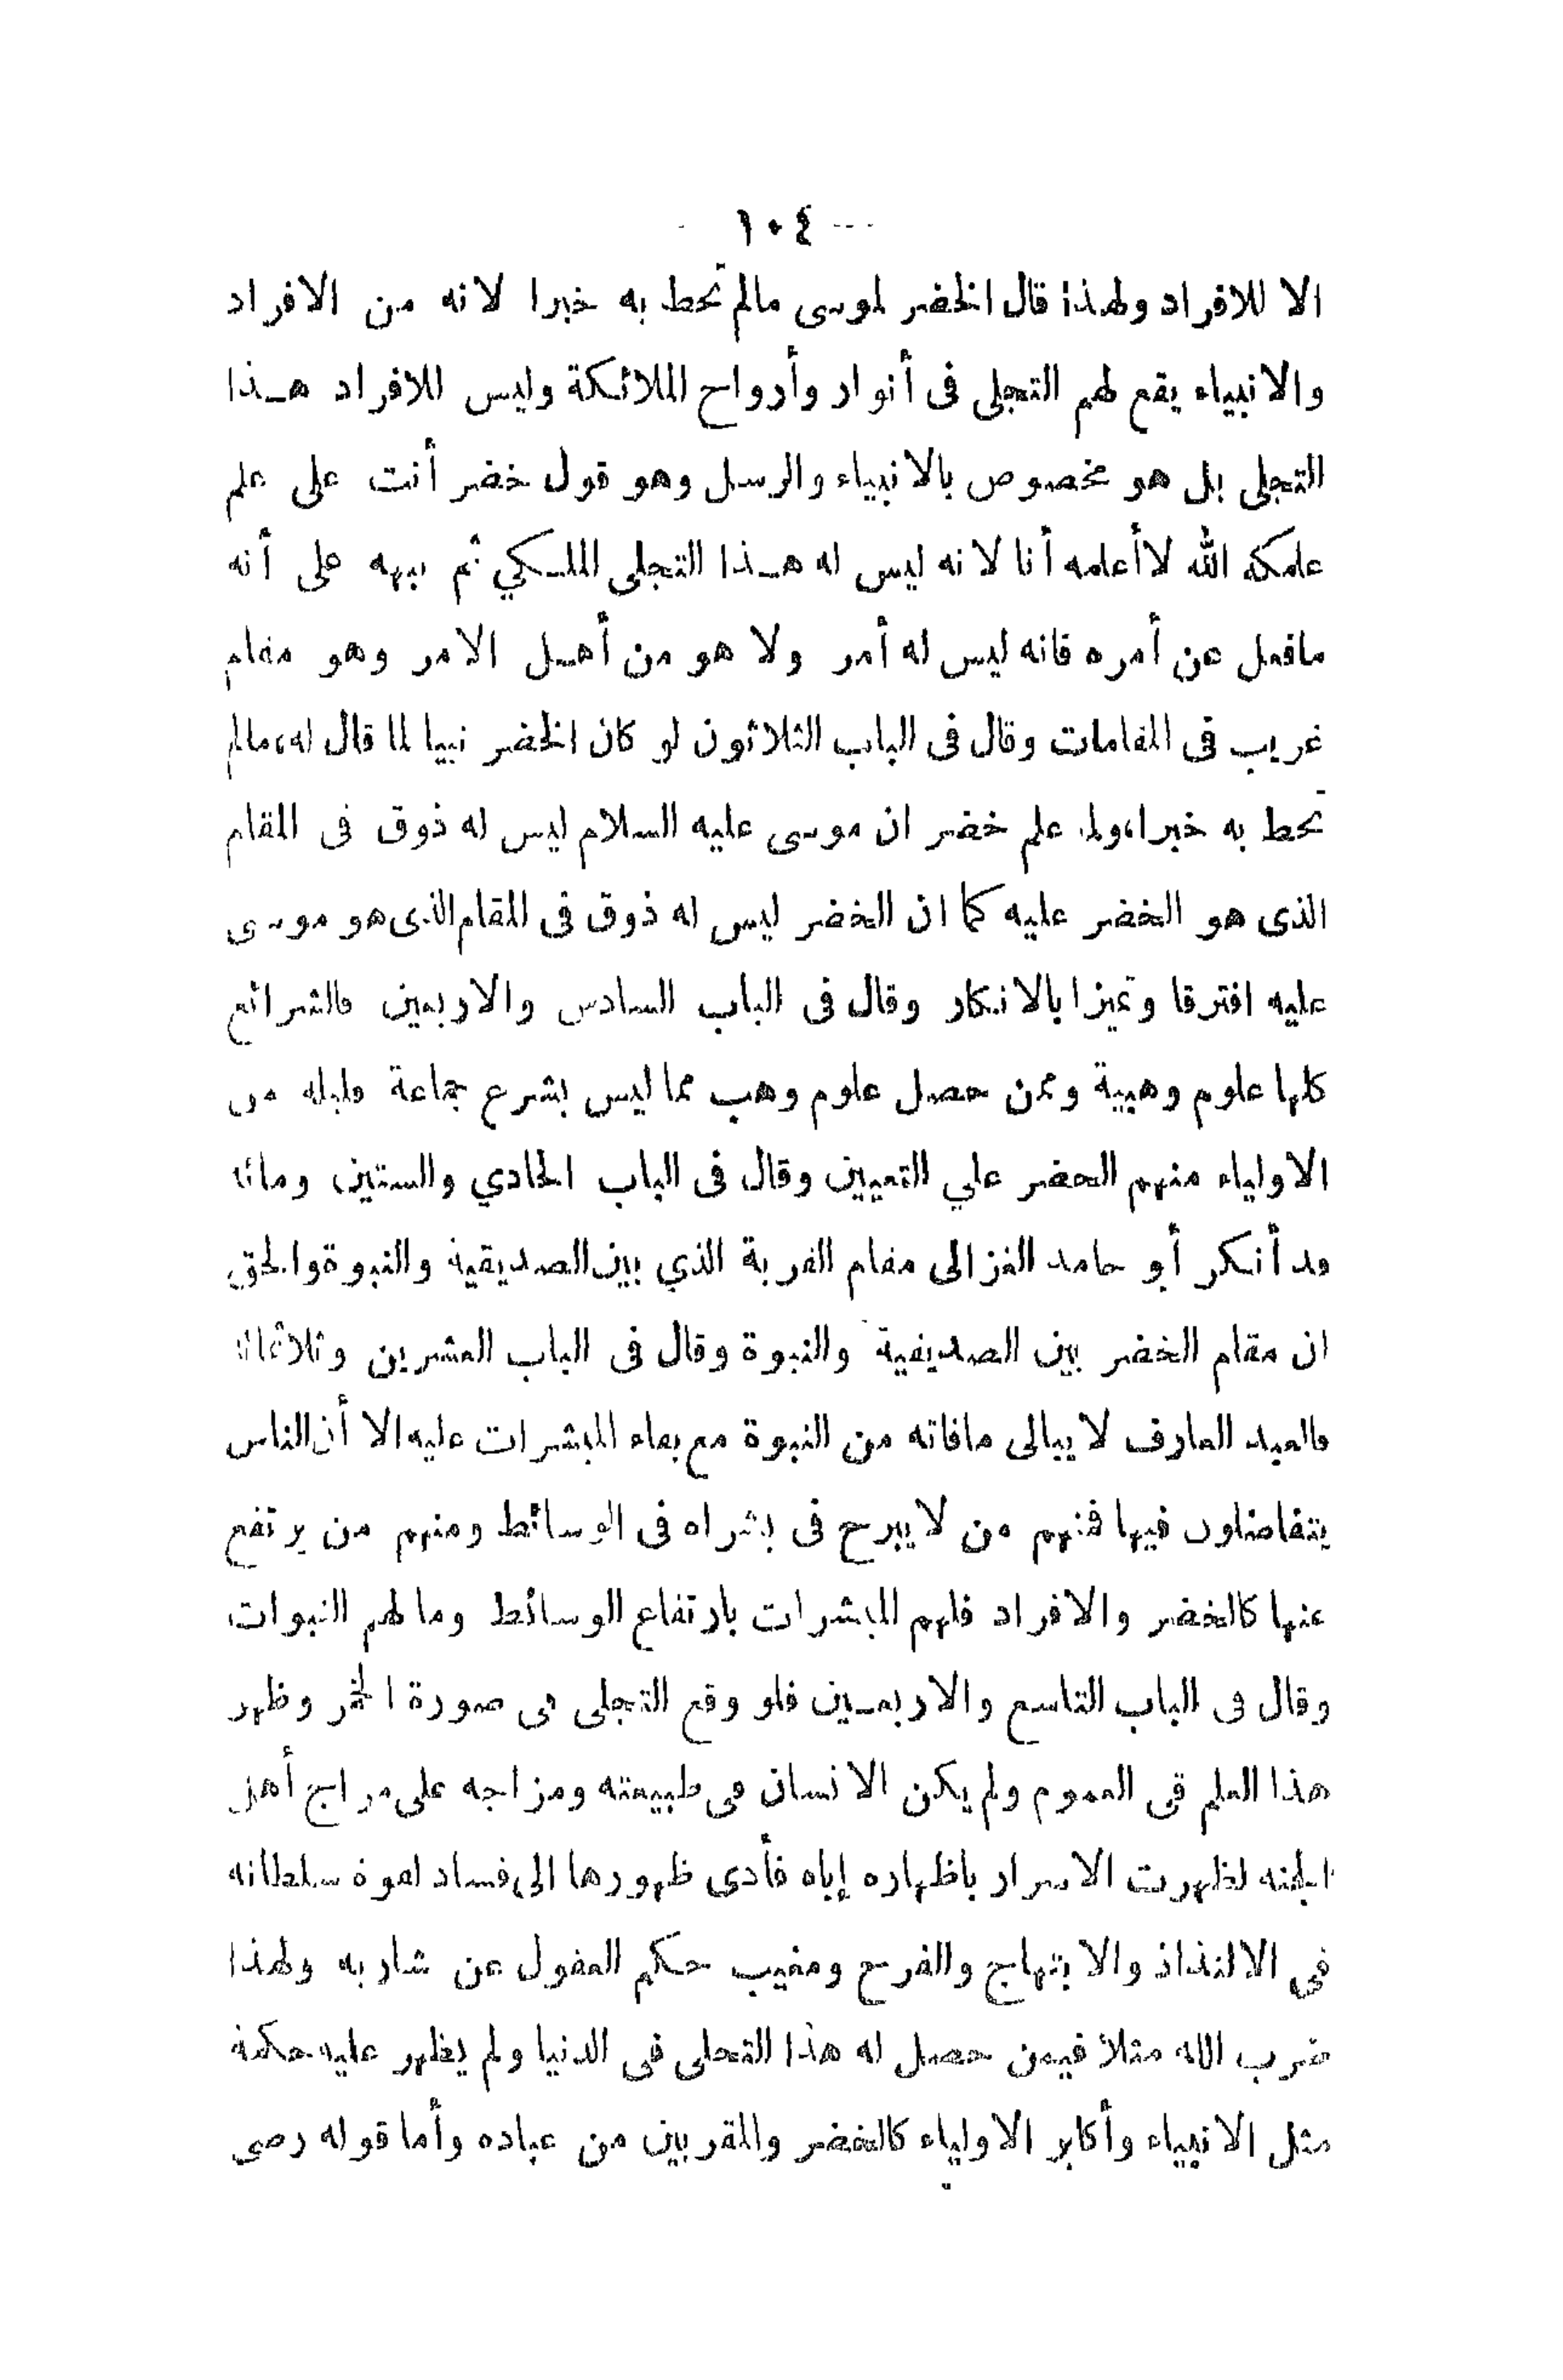 ١٠٤
الا للافراد ولهذا قال الخضر لموسى مالم تحط به خبرا لانه من الافراد
والانبياء يقع لهم التجلى فى أنوار وأرواح الملائكة وليس للافراد هذا
التجلى بل هو مخصوص بالانبياء والرسل وهو قول خضر أنت على علم
علمكه الله لاأعلمه أنا لانه ليس له هذا التجلى الملكي ثم نبهه على أنه
مافعل عن أمره فانه ليس له أمر ولا هو من أهل الامر وهو مقام
غريب فى المقامات وقال فى الباب الثلاثون لو كان الخضر نبيا لما قال له،مالم
تحط به خبرا،ولما علم خضر ان موسى عليه السلام ليس له ذوق فى المقام
الذى هو الخضر عليه كما ان الخضر ليس له ذوق فى المقام الذى هو موسى
عليه افترقا وتميزا بالانكار وقال فى الباب السادس والاربعين فالشرائع
كلها علوم وهبية وممن حصل علوم وهب مما ليس بشرع جماعة قليلة من
الاولياء منهم الخضر علي التعيين وقال فى الباب الحادي والستين ومائة
قد أنكر أبو حامد الغزالى مقام القربة الذي بين الصديقية والنبوة والحق
ان مقام الخضر بين الصديقية والنبوة وقال فى الباب العشرين وثلاثمائة
فالعبد العارف لايبالى مافاته من النبوة مع بقاء المبشرات عليه الا أن الناس
يتفاضلون فيها فمنهم من لايبرح فى بشراه فى الوسائط ومنهم من يرتفع
عنها كالخضر والافراد فلهم المبشرات بارتفاع الوسائط وما لهم النبوات
وقال فى الباب التاسع والاربعين فلو وقع التجلى فى صورة الخمر وظهر
هذا العلم فى العموم ولم يكن الانسان فى طبيعته ومزاجه على مزاج أهل
الجنه لظهرت الاسرار باظهاره إياه فأدى ظهورها الى فساد لقوة سلطانه
في الالتذاذ والابتهاج والفرح ومغيب حكم العقول عن شاربه ولهذا
ضرب الله مثلا فيمن حصل له هذا التجلى فى الدنيا ولم يظهر عليه حكمه
مثل الانبياء وأكابر الاولياء كالخضر والمقربين من عباده وأما قوله رضى